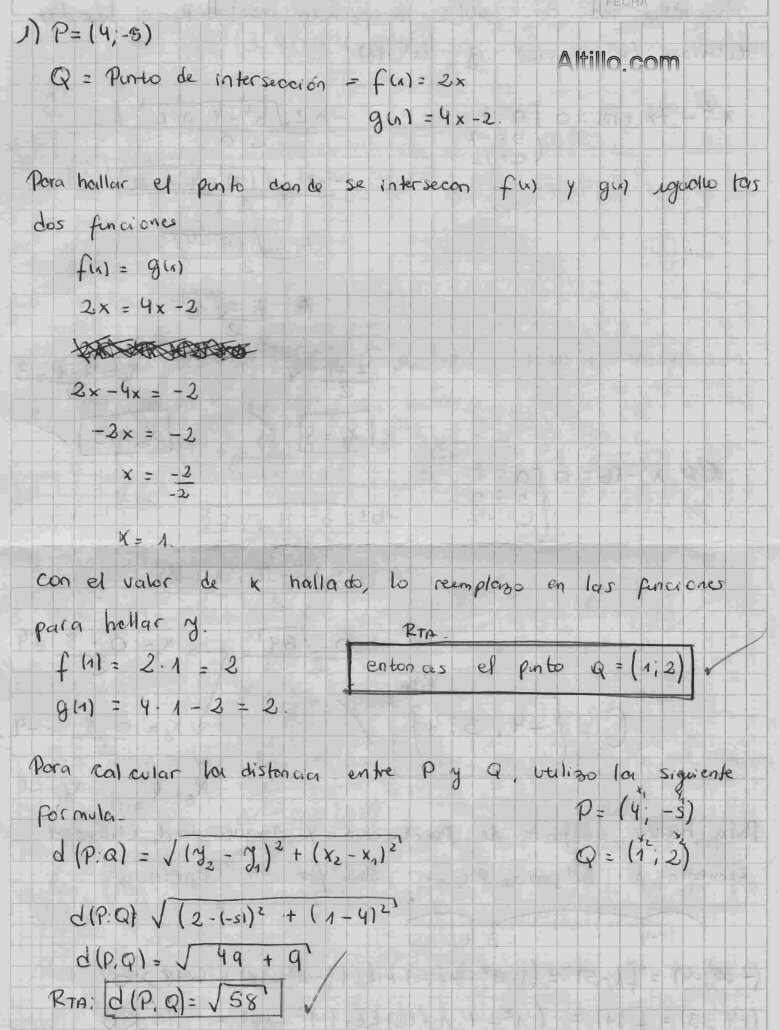 FECHA
1) P = (4; -5)
Altillo.com
Q = Punto de intersección = f(x) = 2x
g(x) = 4x - 2.
Para hallar el punto donde se intersecan f(x) y g(x) igualo las
dos funciones
f(x) = g(x)
2x = 4x - 2
2x - 4x = -2
-2x = -2
x = -2/-2
x = 1.
con el valor de x hallado, lo reemplazo en las funciones
para hallar y.
RTA.
f(1) = 2 · 1 = 2
entonces el punto Q = (1; 2) ✓
g(1) = 4 · 1 - 2 = 2.
Para calcular la distancia entre P y Q, utilizo la siguiente
fórmula.
x₁ y₁
P = (4; -5)
d(P:Q) = √(y₂ - y₁)² + (x₂ - x₁)²
x₂ y₂
Q = (1; 2)
d(P:Q) √(2 - (-5))² + (1 - 4)²
d(P,Q) = √49 + 9
RTA: d(P,Q) = √58 ✓